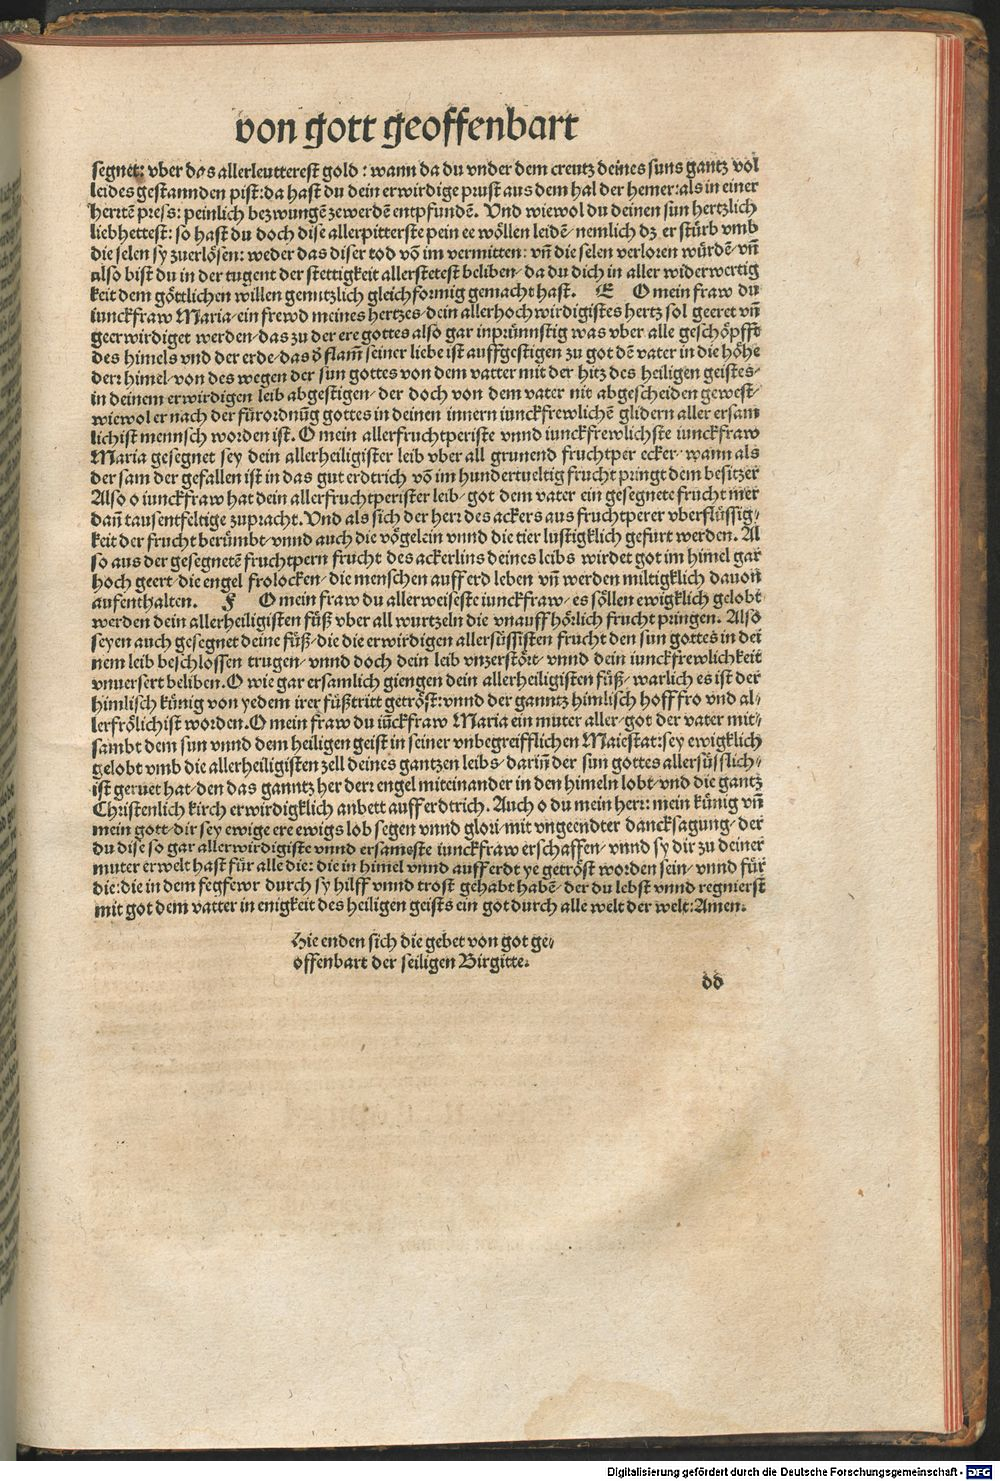 von gott geoffenbart
segnet: vber das allerleutterest gold: wann da du vnder dem creutz deines suns gantz vol
leides gestannden pist: da hast du dein erwirdige prust aus dem hal der hemer: als in einer
herttē press: peinlich bezwungē zewerdē entpfundē. Vnd wiewol du deinen sun hertzlich
liebhettest: so hast du doch dise allerpitterste pein ee wöllen leidē/ nemlich dz er stürb vmb
die selen sy zuerlösen: weder das diser tod vō im vermitten: vn̄ die selen verloren würdē/ vn̄
also bist du in der tugent der stettigkeit allerstetest beliben/ da du dich in aller widerwertig
keit dem göttlichen willen genntzlich gleichformig gemacht hast. E O mein fraw du
iunckfraw Maria/ ein frewd meines hertzes/ dein allerhochwirdigistes hertz sol geeret vn̄
geerwirdiget werden/ das zu der ere gottes also gar inprünnstig was vber alle geschöpfft
des himels vnd der erde/ das d̕ flam̄ seiner liebe ist auffgestigen zu got dē vater in die höhe
derr himel/ von des wegen der sun gottes von dem vatter mit der hitz des heiligen geistes/
in deinem erwirdigen leib abgestigen/ der doch von dem vater nit abgescheiden gewest/
wiewol er nach der fürordnūg gottes in deinen innern iunckfrewlichē glidern aller ersam
lichist mennsch worden ist. O mein allerfruchtperiste vnnd iunckfrewlichste iunckfraw
Maria gesegnet sey dein allerheiligister leib vber all grunend fruchtper ecker/ wann als
der sam der gefallen ist in das gut erdtrich vō im hundertueltig frucht pringt dem besitzer
Also o iunckfraw hat dein allerfruchtperister leib/ got dem vater ein gesegnete frucht mer
dan̄ tausentfeltige zupracht. Vnd als sich der herr des ackers aus fruchtperer vberflüssig/
keit der frucht berümbt/ vnnd auch die vögelein vnnd die tier lustigklich gefürt werden. Al
so aus der gesegnetē fruchtpern frucht des ackerlins deines leibs wirdet got im himel gar
hoch geert/ die engel frolocken/ die menschen auff erd leben vn̄ werden miltigklich dauon
aufenthalten. F O mein fraw du allerweiseste iunckfraw/ es söllen ewigklich gelobt
werden dein allerheiligisten füß vber all wurtzeln die vnauffhörlich frucht pringen. Also
seyen auch gesegnet deine füß/ die die erwirdigen allersüssisten frucht den sun gottes in dei
nem leib beschlossen trugen/ vnnd doch dein leib vnzerstört/ vnnd dein iunckfrewlichkeit
vnuersert beliben. O wie gar ersamlich giengen dein allerheiligisten füß/ warlich es ist der
himlisch künig von yedem irer füßtritt getröst: vnnd der ganntz himlisch hoff fro vnd al/
lerfrölichist worden. O mein fraw du iūckfraw Maria ein muter aller/ got der vater mit/
sambt dem sun vnnd dem heiligen geist in seiner vnbegreifflichen Maiestat: sey ewigklich
gelobt vmb die allerheiligisten zell deines gantzen leibs/ darin̄ der sun gottes allersüsslich/
ist geruet hat/ den das ganntz her derr engel miteinander in den himeln lobt/ vnd die gantz
Christenlich kirch erwirdigklich anbett auff erdtrich. Auch o du mein herr: mein künig vn̄
mein gott/ dir sey ewige ere ewigs lob segen vnnd glori/ mit vngeendter dancksagung/ der
du dise so gar allerwirdigiste vnnd ersameste iunckfraw erschaffen/ vnnd sy dir zu deiner
muter erwelt hast für alle die: die in himel vnnd auff erdt ye getröst worden sein/ vnnd für
die: die in dem fegfewr durch sy hilff vnnd trost gehabt habē/ der du lebst vnnd regnierst
mit got dem vatter in enigkeit des heiligen geists ein got durch alle welt der welt: Amen.
Hie enden sich die gebet von got ge/
offenbart der seiligen Birgitte.
dd
Digitalisierung gefördert durch die Deutsche Forschungsgemeinschaft - DFG